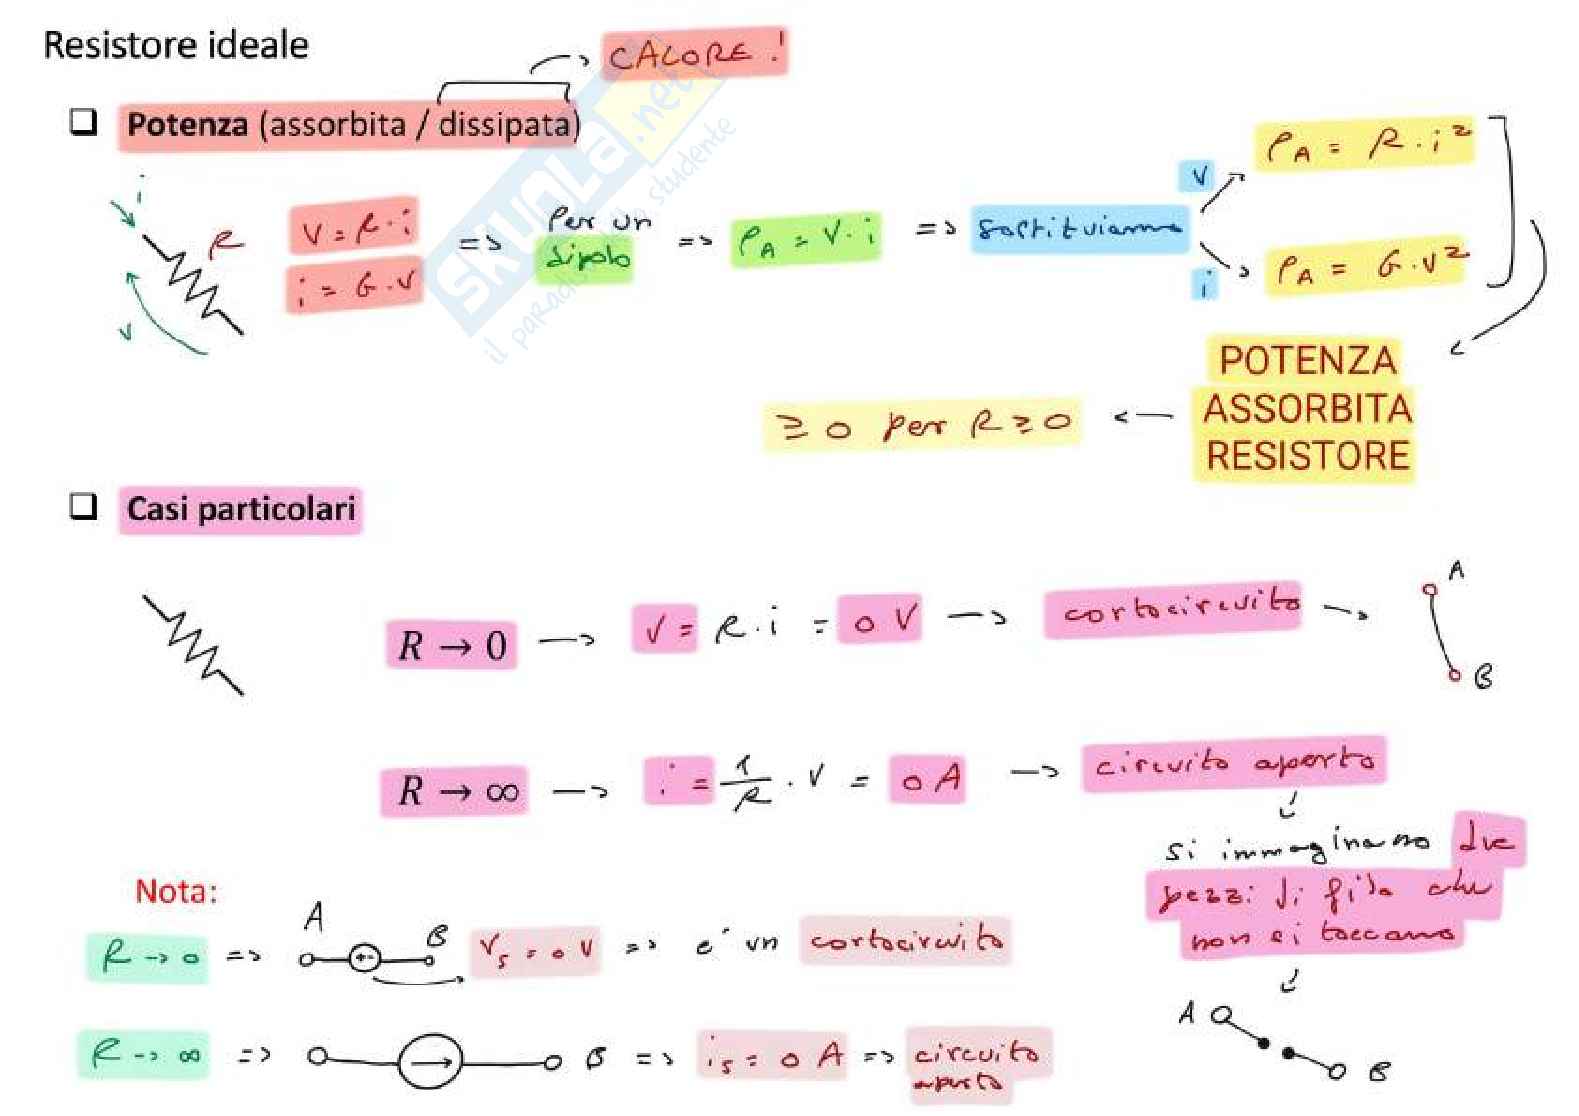 Resistore ideale
CALORE !
❑ Potenza (assorbita / dissipata)
i
R
v
V = R · i
i = G · V
=> Per un dipolo => PA = V · i => sostituiamo
V
PA = R · i²
i
PA = G · V²
POTENZA
ASSORBITA
RESISTORE
≥ 0 per R ≥ 0
❑ Casi particolari
R → 0 → V = R · i = 0 V → cortocircuito →
A
B
R → ∞ → i = 1/R · V = 0 A → circuito aperto
si immaginano due
pezzi di filo che
non si toccano
A
B
Nota:
R → 0 => A +- B Vs = 0 V => e' un cortocircuito
R → ∞ => B => is = 0 A => circuito
aperto
SKUOLA.net
il paradiso dello studente